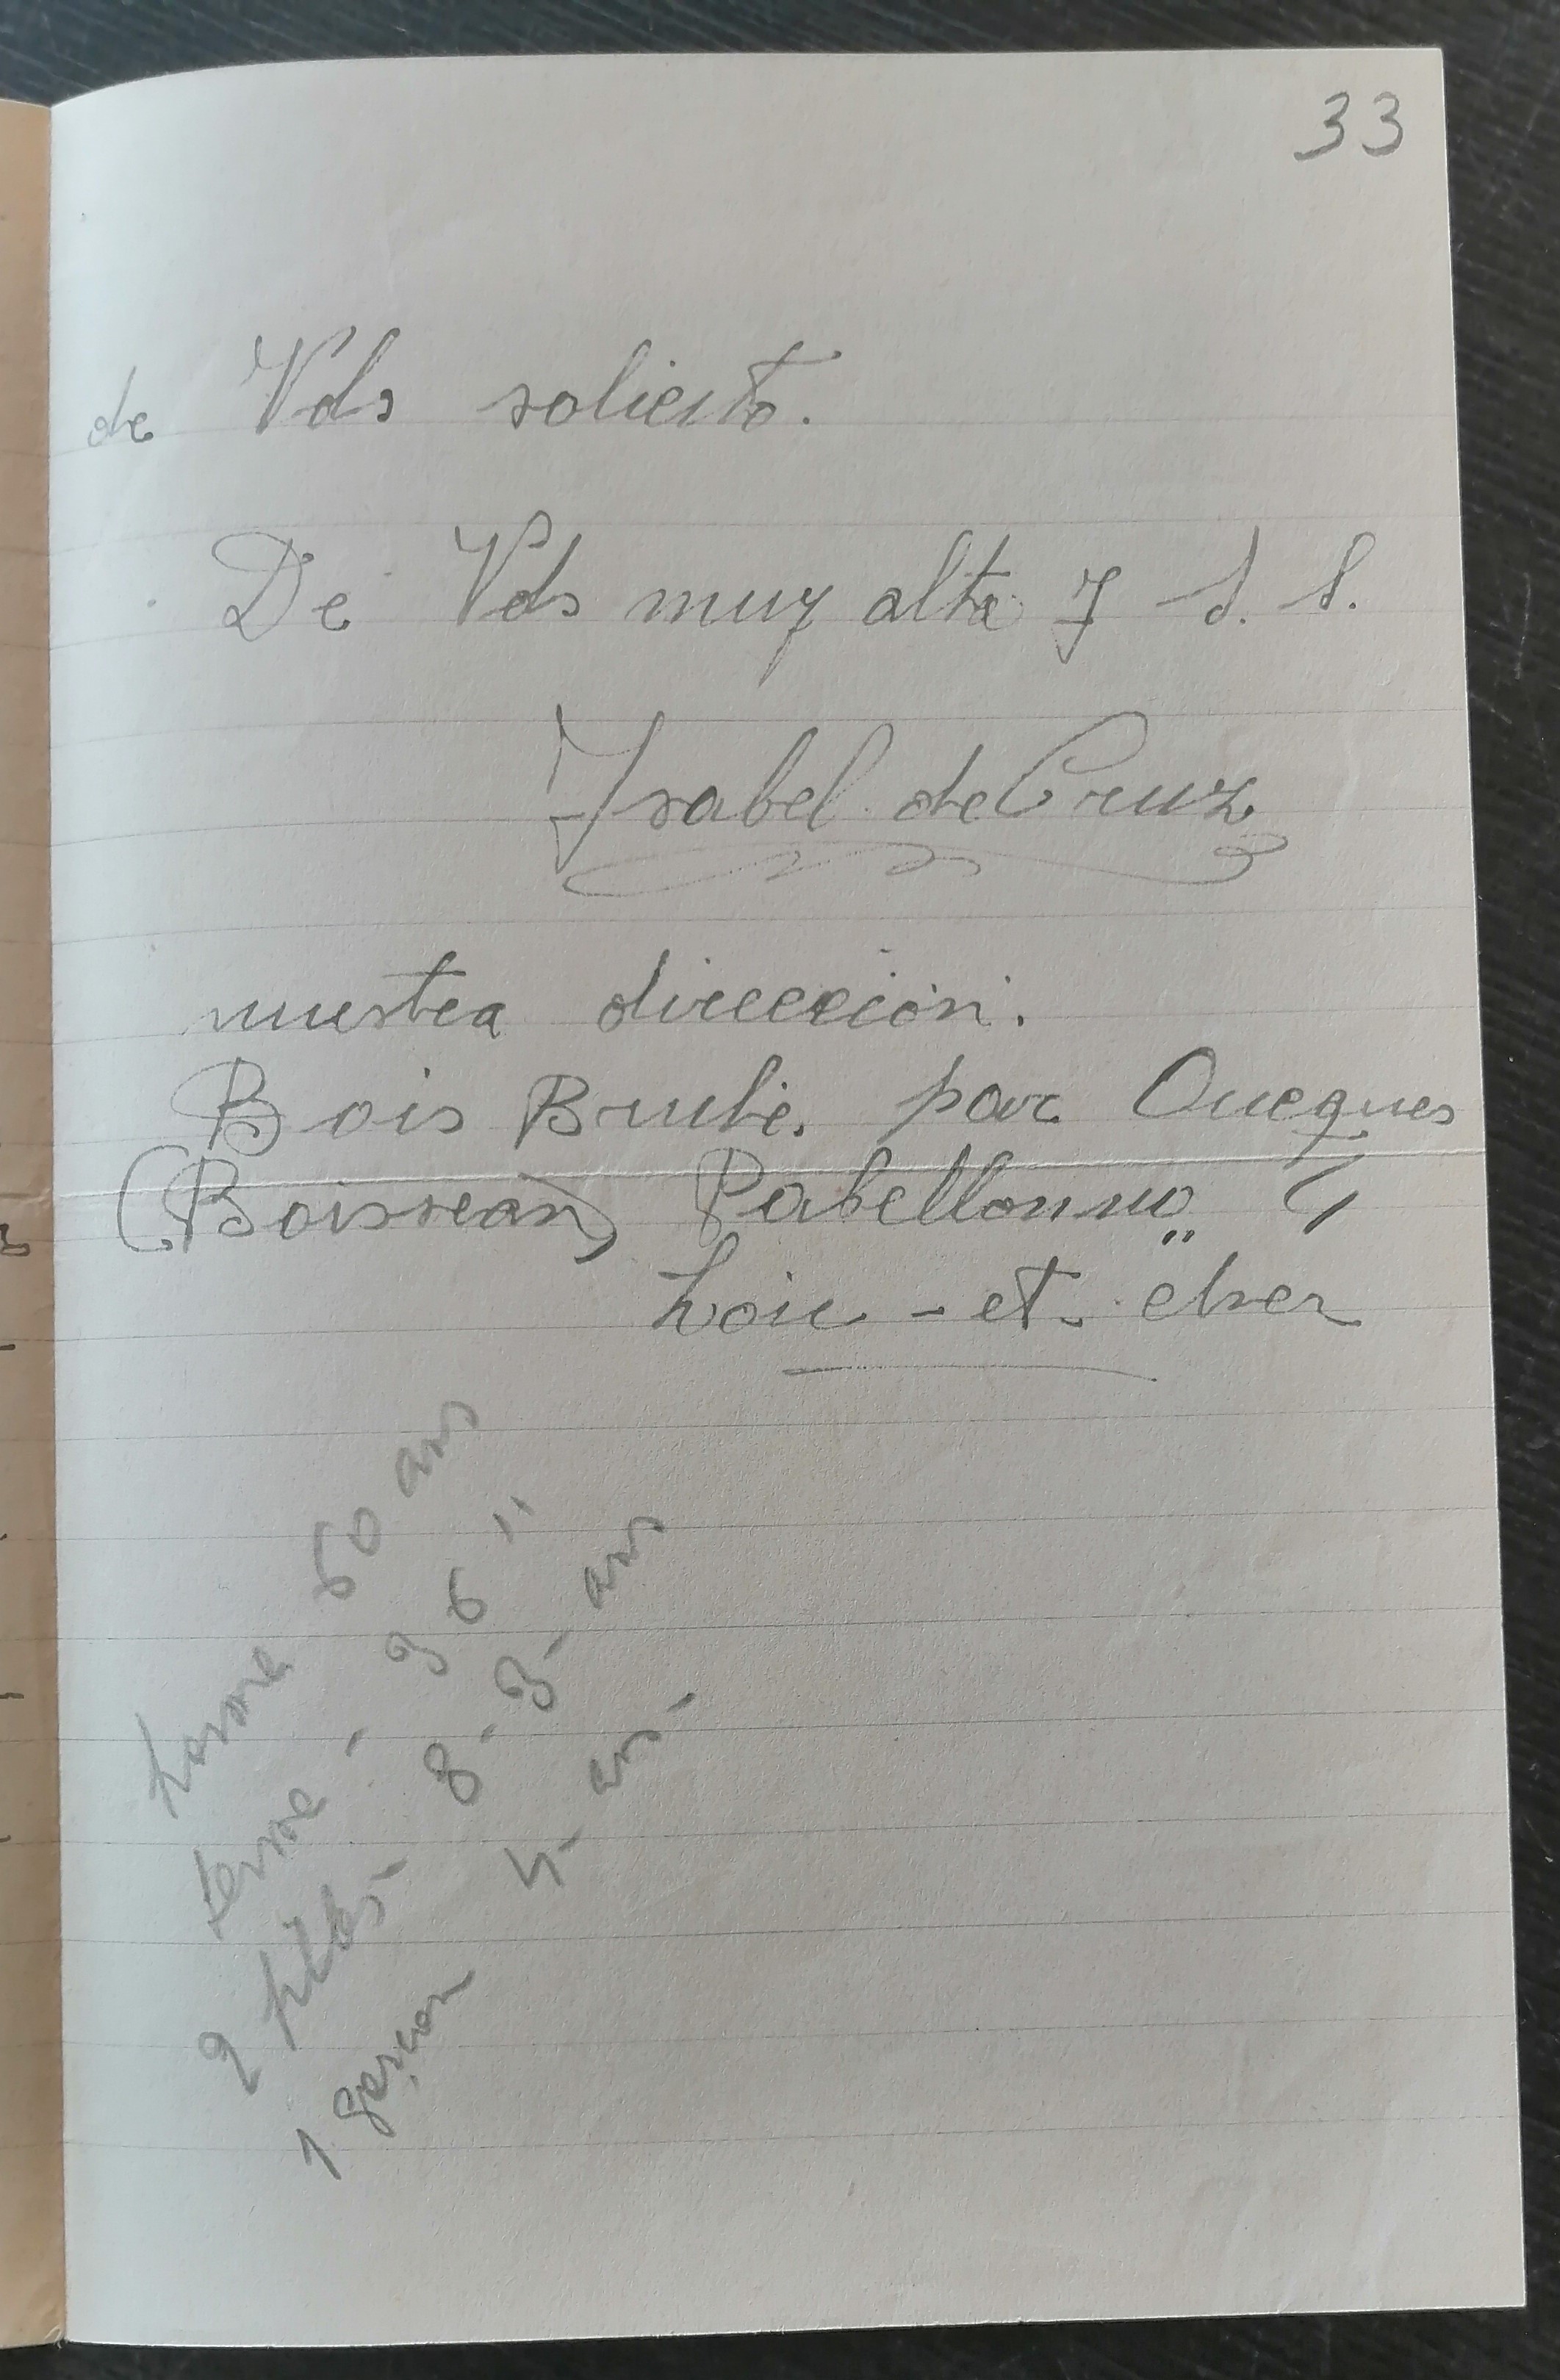 33
de Vds soliento.
De Vds muy alta y s. s.
Ysabel de Cruz
nuestra dirección.
Bois Brulé. par Oucques
(Boisseau) Pabellon no 4
Loir - et - cher
homme 50 ans
femme - 36 "
2 filles - 8 - 3 - ans
1 garçon 4 - ans -